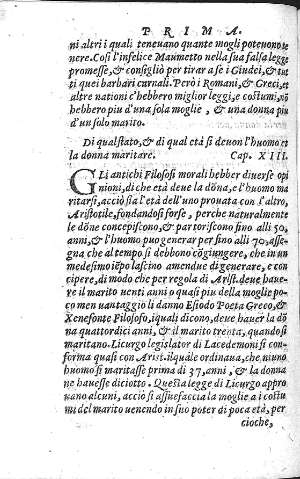 PRIMA.
ni altri i quali teneuano quante mogli poteuono te
nere. Cosi l'infelice Maumetto nella sua falsa legge
promesse, & consigliò per tirar a se i Giudei, & tut
ti quei barbari carnali. Però i Romani, & Greci, et
altre nationi c'hebbero miglior leggi, e costumi, nõ
hebbero piu d'una sola moglie, & una donna piu
d'un solo marito.
Di qual stato, & di qual età si deuon l'huomo et
la donna maritare. Cap. XIII.
GLi antichi Filosofi morali hebber diuerse opi
nioni, di che età deue la dõna, e l'huomo ma
ritarsi, acciò sia l'età dell'uno prouata con l'altro,
Aristotile, fondandosi forse, perche naturalmente
le dõne concepiscono, & partoriscono fino alli 50,
anni, & l'huomo puo generar per fino alli 70, asse
gna che al tempo si debbono cõgiungere, che in un
medesimo tẽpo lascino amendue di generare, e con
cipere, di modo che per regola di Arist. deue haue
re il marito uenti anni o quasi piu della moglie po
co men uantaggio li danno Esiodo Poeta Greco, &
Xenefonte Filosofo, i quali dicono, deue hauer la dõ
na quattordici anni, & il marito trenta, quando si
maritano. Licurgo legislator di Lacedemoni si con
forma quasi con Arist. il quale ordinaua, che niuno
huomo si maritasse prima di 37, anni, & la donna
ne hauesse diciotto. Questa legge di Licurgo appro
uano alcuni, acciò si assuefaccia la moglie a i costu
mi del marito uenendo in suo poter di poca età, per
cioche,